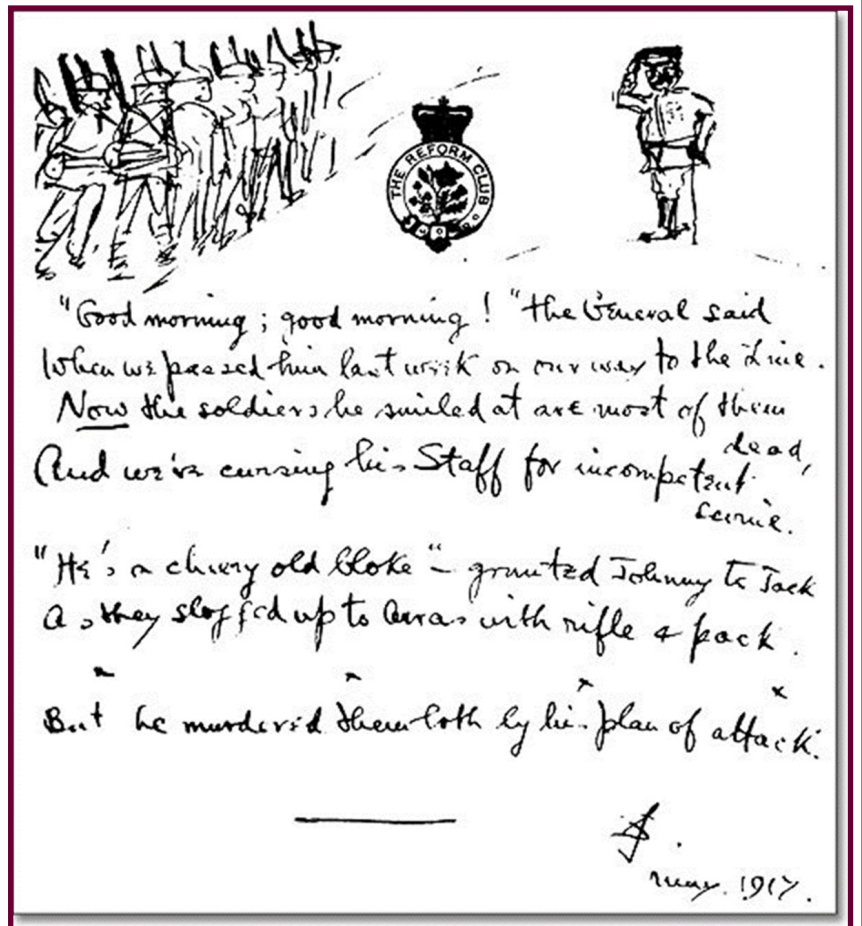 THE REFORM CLUB
"Good morning; good morning!" the General said
When we passed him last week on our way to the Line.
Now the soldiers he smiled at are most of them
dead,
And we're cursing his Staff for incompetent
swine.
"He's a cheery old bloke" – grunted Johnny to Jack
As they slogged up to Arras with rifle & pack.
x x x x
But he murdered them both by his plan of attack.
SS.
May. 1917.